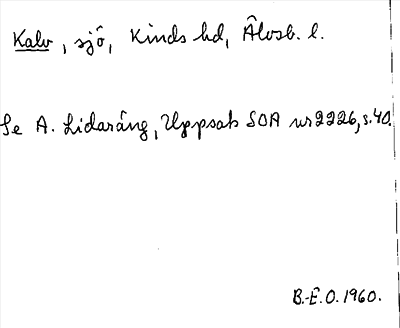 Kalv, sjö, Kinds hd, Älvsb. l.
Se A. Lidaräng, Uppsats SOA nr 2226, s. 40.
B.-E.O. 1960.